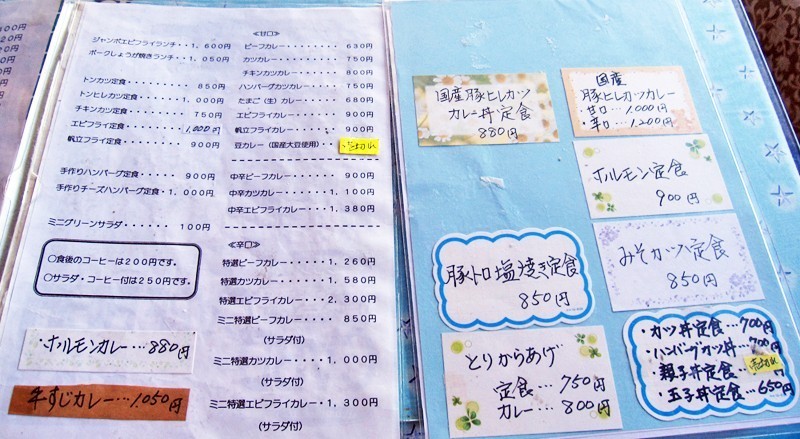 ジャンボエビフライランチ・・１，６００円
ポークしょうが焼きランチ・・１，０５０円
トンカツ定食・・・・・・・・８５０円
トンヒレカツ定食・・・・・１，０００円
チキンカツ定食・・・・・・・７５０円
エビフライ定食・・・・・・1,000円
帆立フライ定食・・・・・・・９００円
手作りハンバーグ定食・・・・９００円
手作りチーズハンバーグ定食・１，０００円
ミニグリーンサラダ・・・・・１００円
○食後のコーヒーは２００円です。
○サラダ・コーヒー付は２５０円です。
ホルモンカレー…880円
牛すじカレー…1,050円
≪甘口≫
ビーフカレー・・・・・・・・６３０円
カツカレー・・・・・・・・・７５０円
チキンカツカレー・・・・・・８００円
ハンバーグカツカレー・・・・７５０円
たまご（生）カレー・・・・・６８０円
エビフライカレー・・・・・・９００円
帆立フライカレー・・・・・・９００円
豆カレー（国産大豆使用）・・売切れ
中辛ビーフカレー・・・・・・９００円
中辛カツカレー・・・・・１，１００円
中辛エビフライカレー・・・１，３８０円
≪辛口≫
特選ビーフカレー・・・・１，２６０円
特選カツカレー・・・・・１，５８０円
特選エビフライカレー・・・２，３００円
ミニ特選ビーフカレー・・・８５０円
（サラダ付）
ミニ特選カツカレー・・・１，０００円
（サラダ付）
ミニ特選エビフライカレー・１，３００円
（サラダ付）
国産豚ヒレカツ
カレー丼定食
880円
国産
豚ヒレカツカレー
・甘口…1,000円
・辛口…1,200円
ホルモン定食
900円
みそカツ定食
850円
豚トロ塩焼き定食
850円
とりからあげ
定食…750円
カレー…800円
・カツ丼定食…700円
・ハンバーグカツ丼…700円
・親子丼定食…売切れ 円
・玉子丼定食…650円